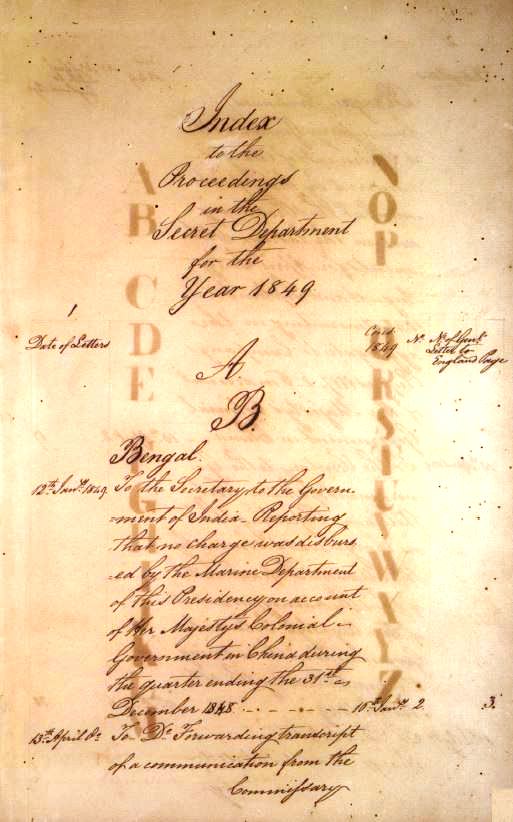 Index
to the
Proceedings
in the
Secret Department
for the
Year 1849
Date of Letters
Cons.
1849 No. No. of Govt.
Letter to
England Page
A
B.
Bengal.
12th. Jany. 1849. To the Secretary to the Govern-
=ment of India - Reporting
that no charge was disburs
=ed by the Marine Department
of this Presidency on account
of Her Majesty's Colonial -
Government in China during
the quarter ending the 31st.
December 1848 - - - - - - 10th. Jany. 2. 3.
13th. April do. To Do. Forwarding transcript
of a communication from the
Commissary
A
B
C
D
E
G
N
O
P
R
S
T
U
V
W
X
Y
Z